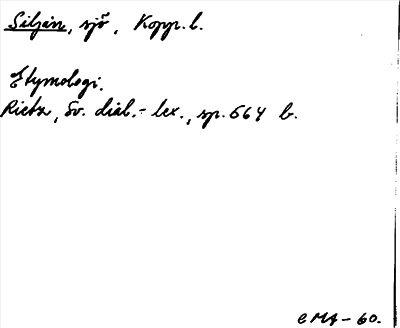 Siljan, sjö, Kopp. l.
Etymologi.
Rietz, Sv. dial.-lex., sp. 564 b.
CMA-60.